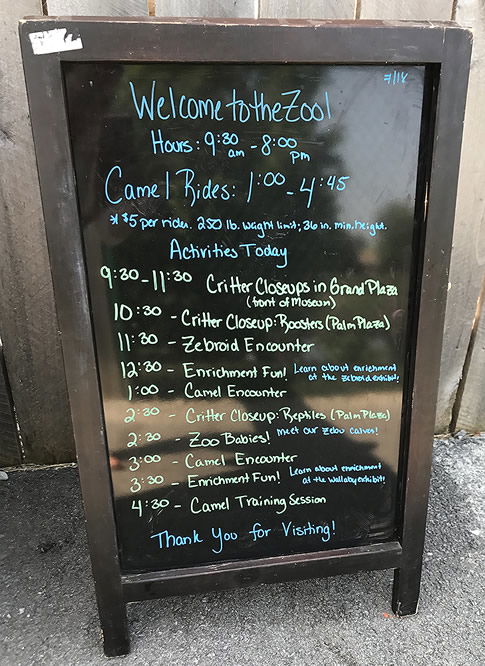 7/18
Welcome to the Zoo!
Hours: 9:30 am - 8:00 pm
Camel Rides: 1:00 - 4:45
* $5 per rider. 250 lb. weight limit; 36 in. min. height.
Activities Today
9:30 - 11:30 Critter Closeups in Grand Plaza
(front of Museum)
10:30 - Critter Closeup: Roosters (Palm Plaza)
11:30 - Zebroid Encounter
12:30 - Enrichment Fun! Learn about enrichment
at the zebroid exhibit!
1:00 - Camel Encounter
2:30 - Critter Closeup: Reptiles (Palm Plaza)
2:30 - Zoo Babies! meet our Zebu calves!
3:00 - Camel Encounter
3:30 - Enrichment Fun! Learn about enrichment
at the Wallaby exhibit!
4:30 - Camel Training Session
Thank You for Visiting!